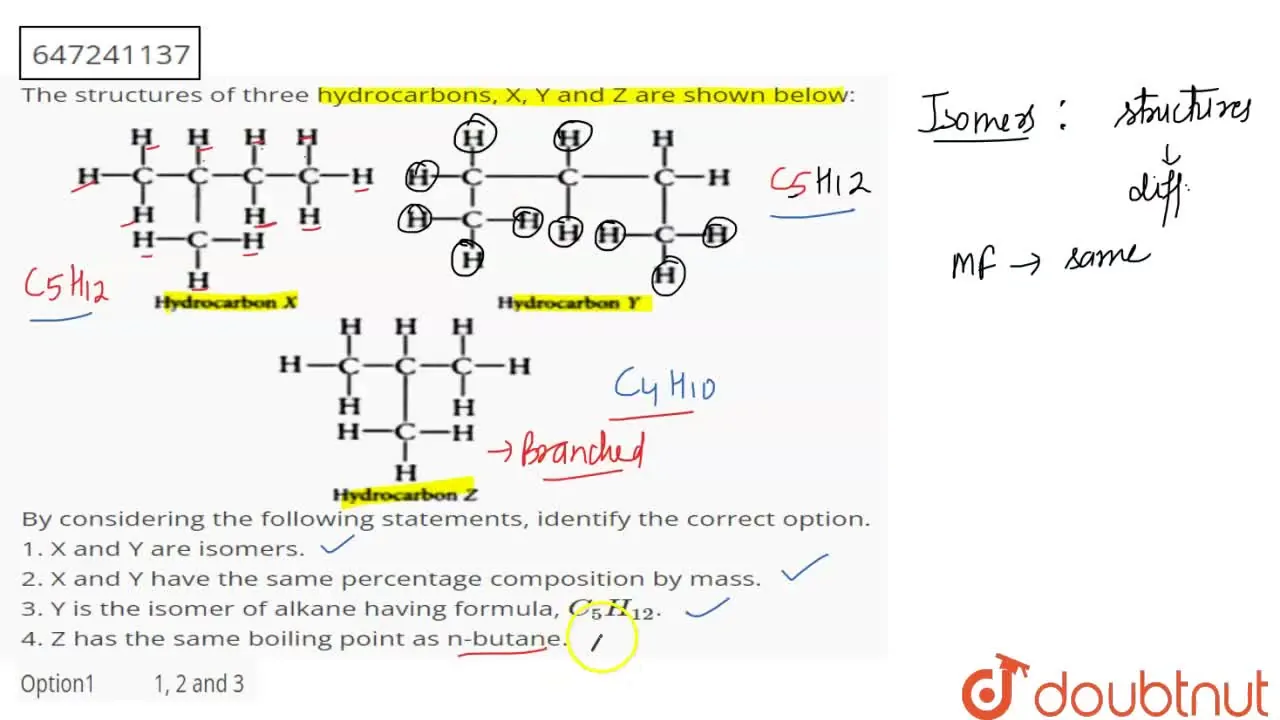 647241137
The structures of three hydrocarbons, X, Y and Z are shown below:
Isomers : structures
↓
diff.
MF → same
H H H H
H—C—C—C—C—H
H H H
H—C—H
H
C5H12
Hydrocarbon X
H H H
H—C—C—C—H
H—C—H H H—C—H
H H
C5H12
Hydrocarbon Y
H H H
H—C—C—C—H
H H
H—C—H
H
C4H10
→ Branched
Hydrocarbon Z
By considering the following statements, identify the correct option.
1. X and Y are isomers. ✓
2. X and Y have the same percentage composition by mass. ✓
3. Y is the isomer of alkane having formula, C₅H₁₂. ✓
4. Z has the same boiling point as n-butane.
Option1 1, 2 and 3
doubtnut